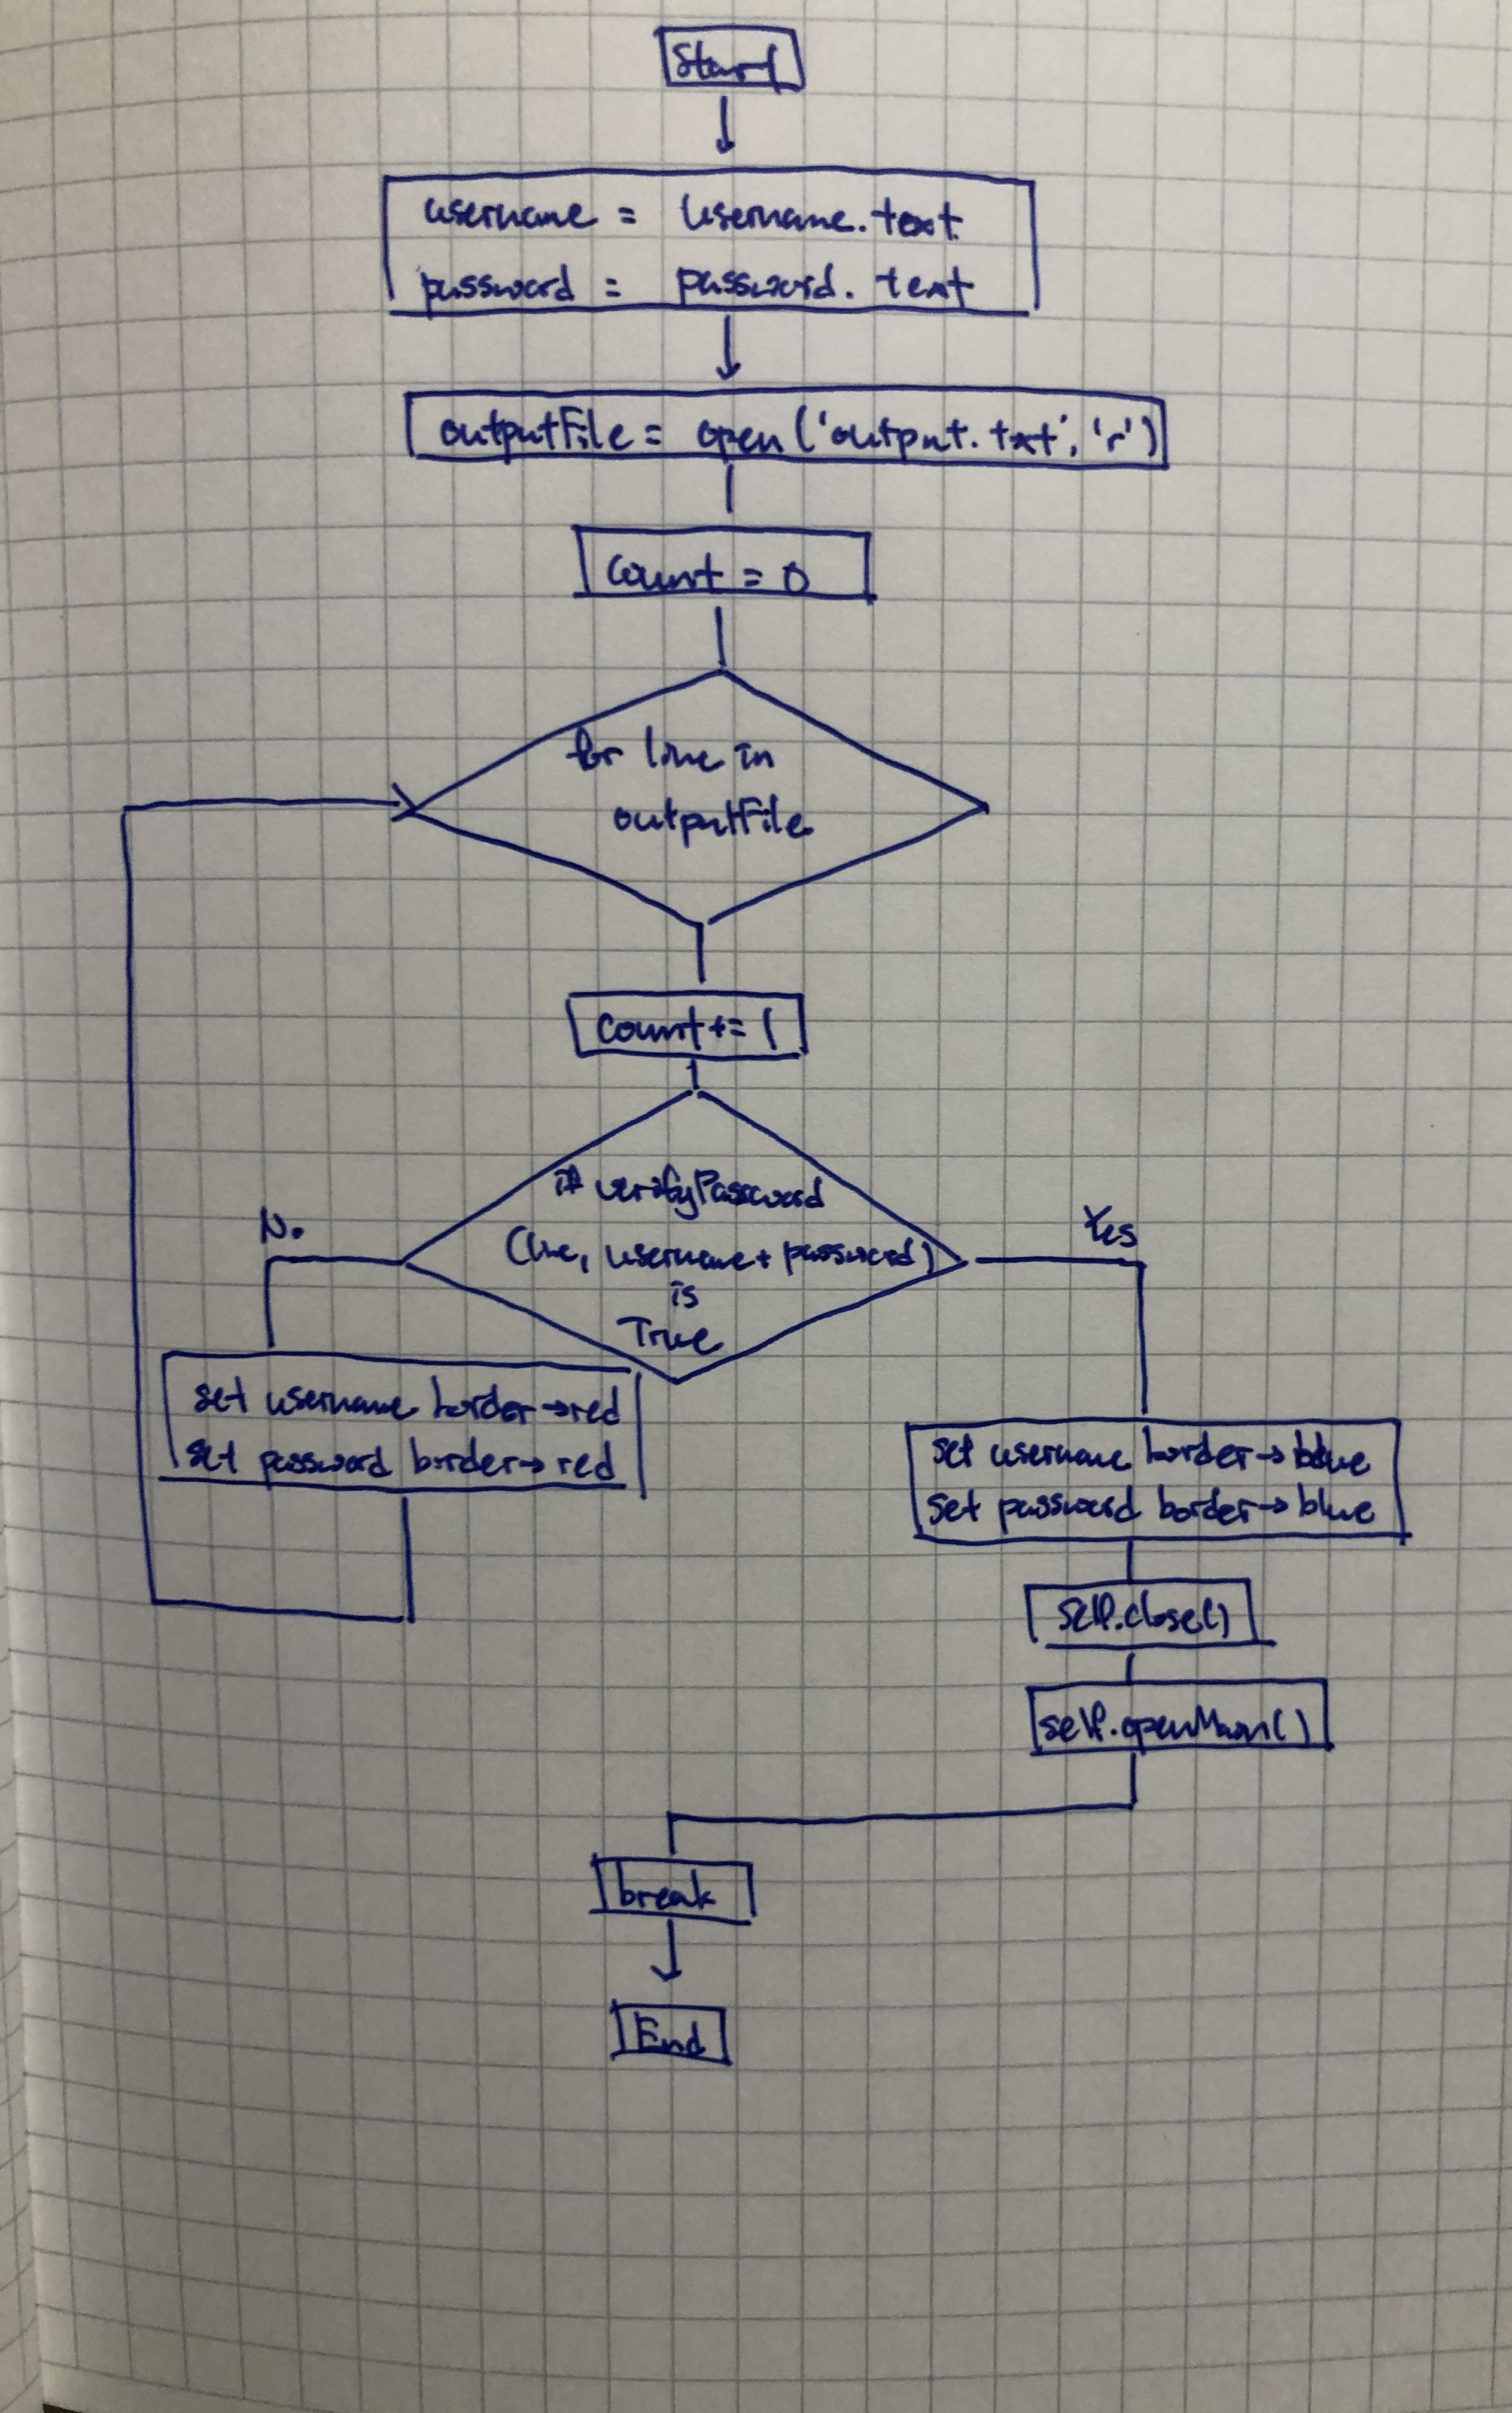 Start
username = username.text
password = password.text
outputFile = open('output.txt', 'r')
count = 0
for line in
outputFile
count += 1
if verifyPassword
(line, username + password)
is
True
No
Yes
set username border → red
set password border → red
set username border → blue
set password border → blue
self.close()
self.openMain()
break
End